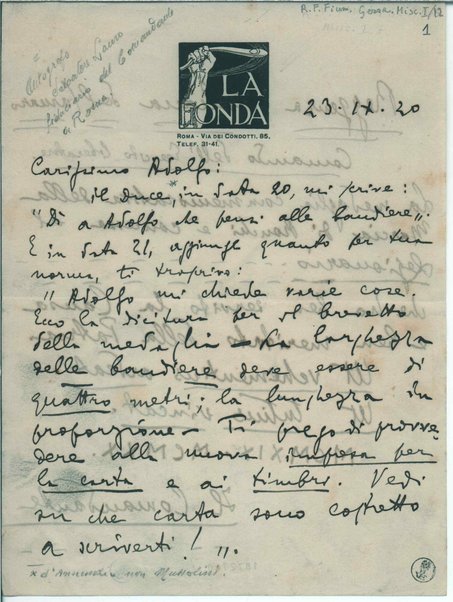 R. F. Fium. Gener. Misc. I/12
1
Autografo
fiduciario del Comandante
a Roma
LA
FONDA
ROMA - VIA DEI CONDOTTI, 85,
TELEF. 31-41.
23. IX. 20
Carissimo Adolfo:
il Duce,* in data 20, mi scrive:
"Dì a Adolfo che pensi alle bandiere".
E in data 21, aggiunge quanto per tua
norma, ti trascrivo:
"Adolfo mi chiede varie cose.
Ecco la dicitura per il brevetto
della medaglia — La larghezza
delle bandiere deve essere di
quattro metri; la lunghezza in
proporzione — Ti prego di provve
dere alla nuova impresa per
la carta e ai timbri. Vedi
su che carta sono costretto
a scriverti! „.
* d'Annunzio non Mussolini